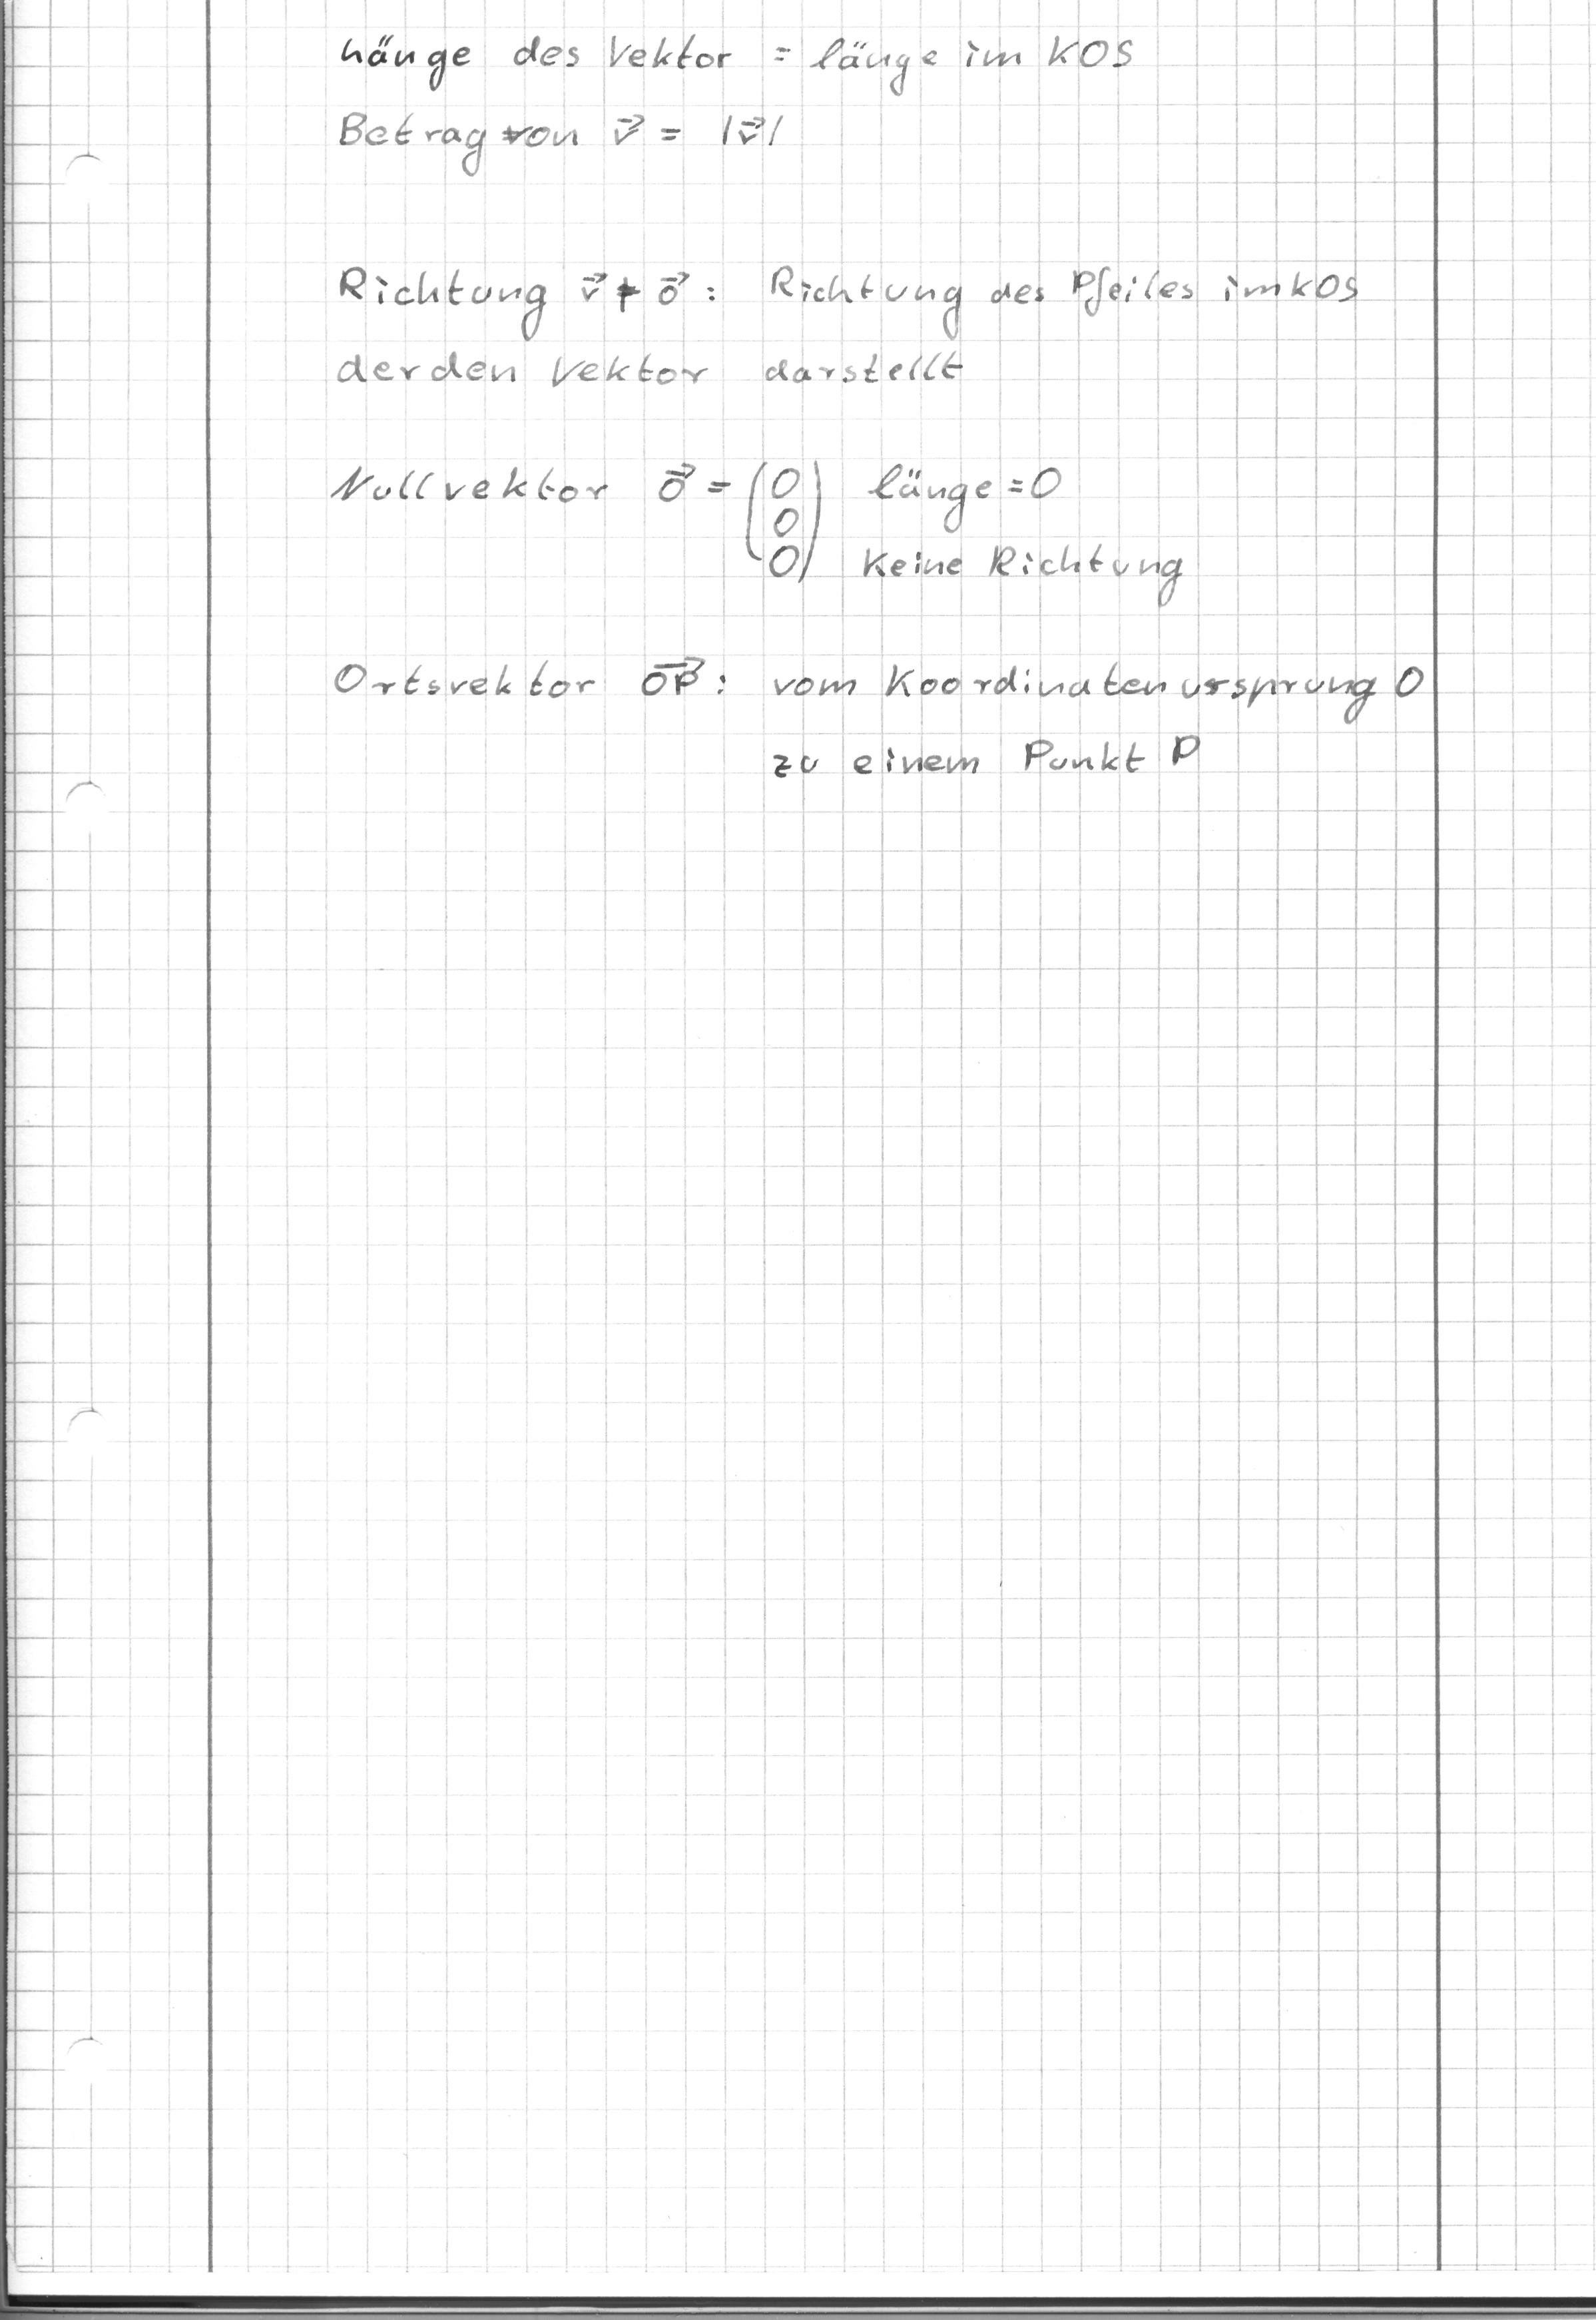 hänge des Vektor = länge im KOS
Betrag von v⃗ = |v⃗|
Richtung v⃗ ≠ o⃗ : Richtung des Pfeiles im KOS
der den Vektor darstellt
Nullvektor o⃗ = (0 länge = 0
0
0) Keine Richtung
Ortsvektor OP⃗ : vom Koordinatenursprung O
zu einem Punkt P